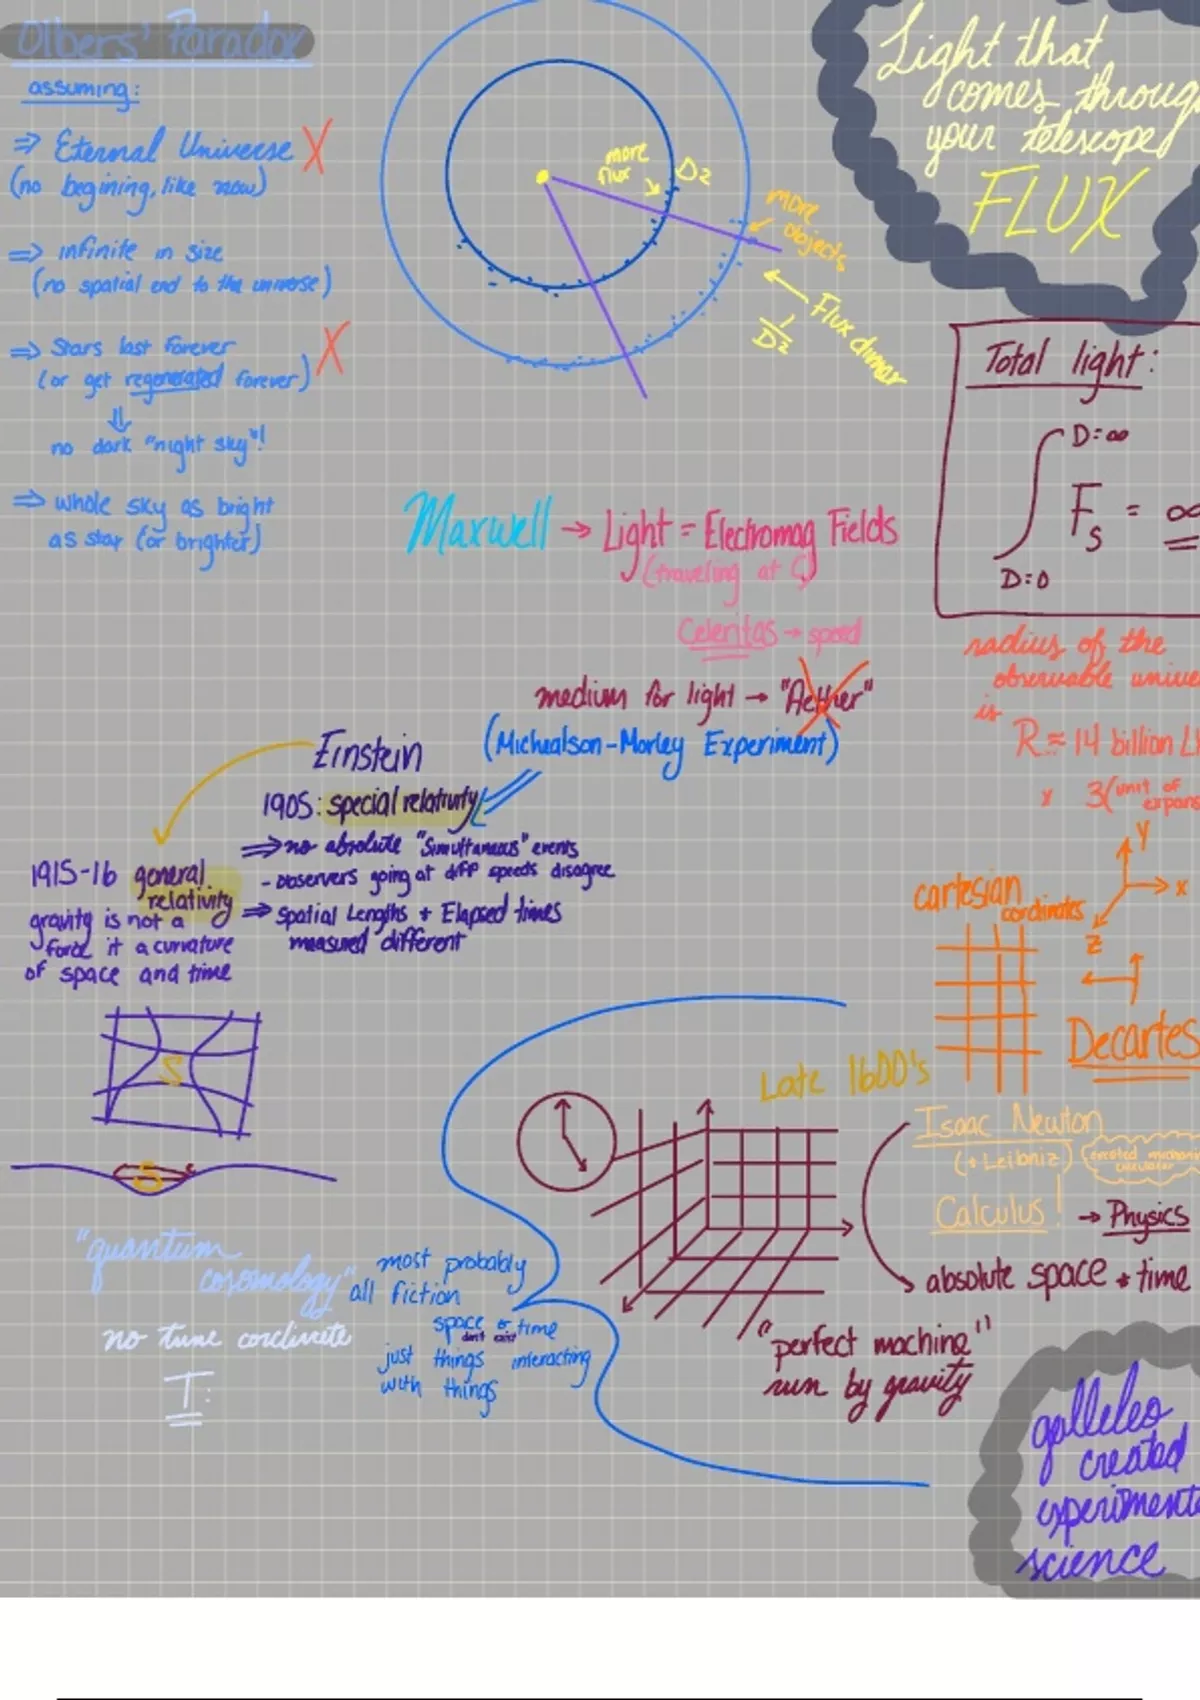 Olbers' Paradox
assuming:
⇒ Eternal Universe X
(no begining, like now)
⇒ infinite in size
(no spatial end to the universe)
⇒ Stars last forever X
(or get regenerated forever)
⇓
no dark "night sky"!
⇒ whole sky as bright
as star (or brighter)
more
flux
D2
more
objects
Flux dimmer
1/D²
Light that
comes throug
your telescope
FLUX
Total light:
D=∞
∫ Fs = ∞
D=0
Maxwell → Light = Electromag Fields
(traveling at C)
Celeritas → speed
medium for light → "Aether"
(Michealson-Morley Experiment)
radius of the
observable unive
is
R ≈ 14 billion L
x 3(unit of
expans
Einstein
1905: special relativity
⇒ no absolute "Simultaneous" events
- observers going at diff speeds disagree
⇒ Spatial Lengths + Elapsed times
measured different
1915-16 general
relativity
gravity is not a
force it a curvature
of space and time
S
S
cartesian
cordinates
Y
X
Z
Decartes
Late 1600's
Isaac Newton
(+ Leibniz)
created
Calculus! → Physics
absolute space + time
"perfect machine"
run by gravity
"quantum
cosmology"
no time cordinate
T:
most probably
all fiction
space & time
don't exist
just things interacting
with things
galleleo
created
experimenta
science